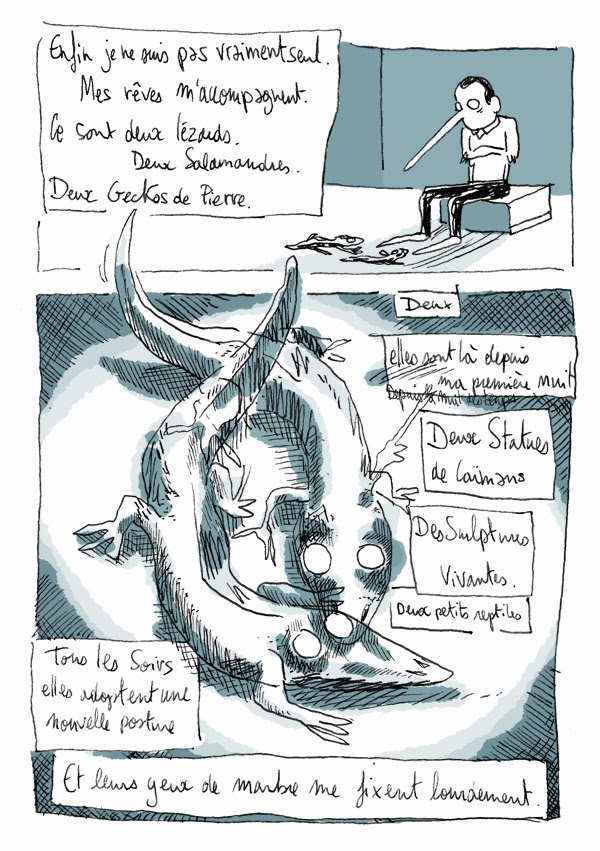 Enfin je ne suis pas vraiment seul.
Mes rêves m'accompagnent.
Ce sont deux lézards.
Deux Salamandres.
Deux Geckos de Pierre.
Deux
elles sont là depuis
ma première nuit
Depuis la nuit
Deux Statues
de Caïmans
Des Sculptures
Vivantes.
Deux petits reptiles
Tous les Soirs
elles adoptent une
nouvelle posture
Et leurs yeux de marbre me fixent lourdement.